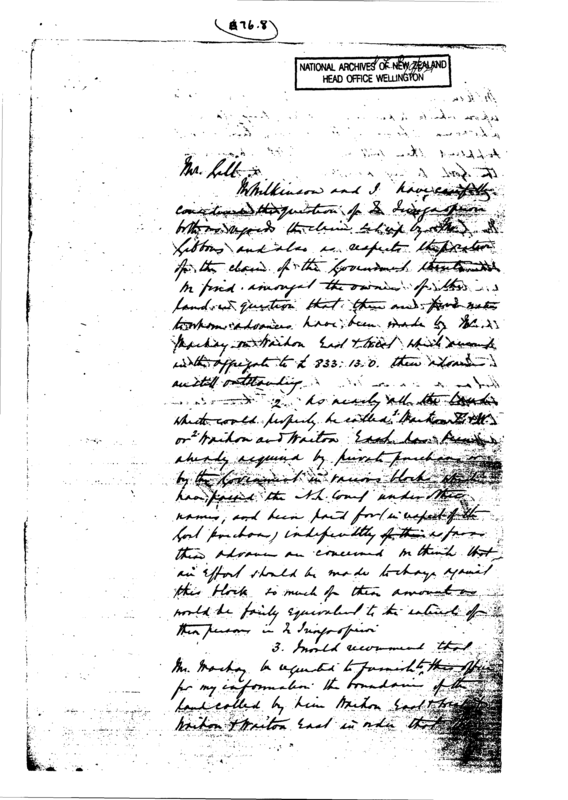 A76.8
NATIONAL ARCHIVES OF NEW ZEALAND
HEAD OFFICE WELLINGTON
Mr. Gill
Mr Wilkinson and I have carefully
considered the question of Te
both as regards the claim by
Gibbons and also as respects the
of the claim of the Government
We find amongst the owners of the
land in question that there are
to whom advances have been made by Mr.
Mackay on Waihou East & West which amount
in the aggregate to £833.13.0. these advances
are still outstanding
2 As nearly all the lands
which could properly be called Waihou E & W.
or Waihou and Waitoa East has been
already acquired by private purchase or
by the Government in various blocks which
have passed the N.L. Court under other
names, and been paid for (in respect of the
Govt purchases) independently so far as
these advances are concerned we think that
an effort should be made to charge against
this block so much of these amounts as
would be fairly equivalent to the interest of
these persons in Te
3. I would recommend that
Mr. Mackay be requested to furnish this office
for my information the boundaries of the
land called by him Waihou East & West
Waihou & Waitoa East in order that